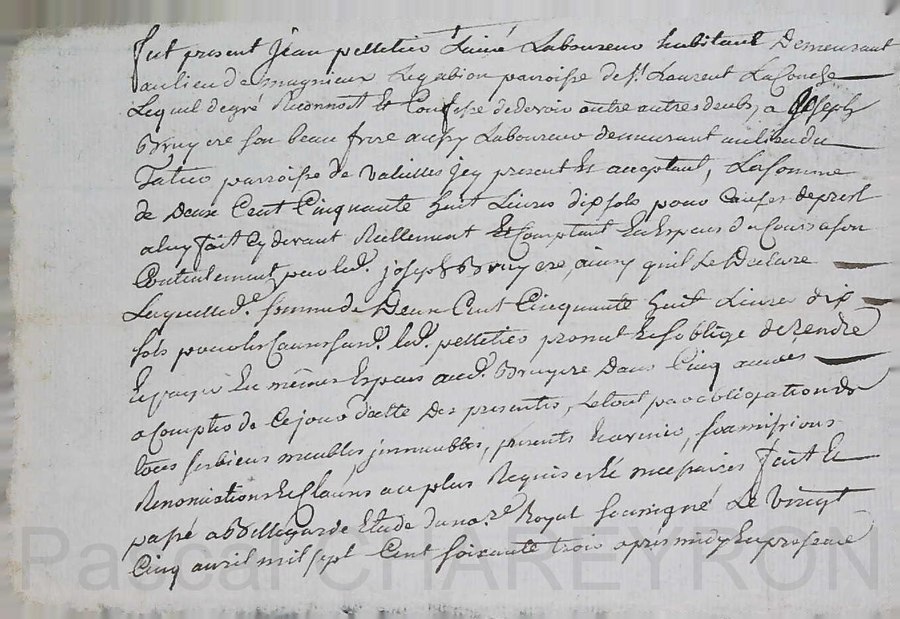 fut present jean pelletier L'ainé Laboureur habitant Demeurant
au lieu de magnieux Legabion parroisse de st. Laurent La Conche
Lequel de gré Reconnoit Et Confesse de devoir antre autres deubs, a Joseph
Bruyere son beau frere aussy Laboureur demeurant au lieu du
parroisse de Valeilles jcy present Et acceptant, La somme
de Deux Cent Cinquante huit Livres dix sols pour causes de prest
a luy fait Cy devant Reellement Et Comptant En Especes de Cours a son
Contentement par led. joseph Bruyere, ainsy quil Le Declare
Laquelle de. somme de Deux Cent Cincquante huit Livres dix
sols pour les Causes sur d. led. pelletier promet Et soblige de rendre
Et payer En mêmes Especes aud. Bruyere Dans Cinq années
a Compter de Ce jour datte Des presentes, Le tout par obligation de
tous ses biens meubles, jmmeubles, presents Et avenir, soumissions
Renonciations Et Clauses au plus Requises Et necessaires fait Et
passé a Bellegarde Etude du no.re Royal soussigné Le vingt
Cinq avril mil sept Cent soixante trois apres midy En presence
Pascal CHAREYRON